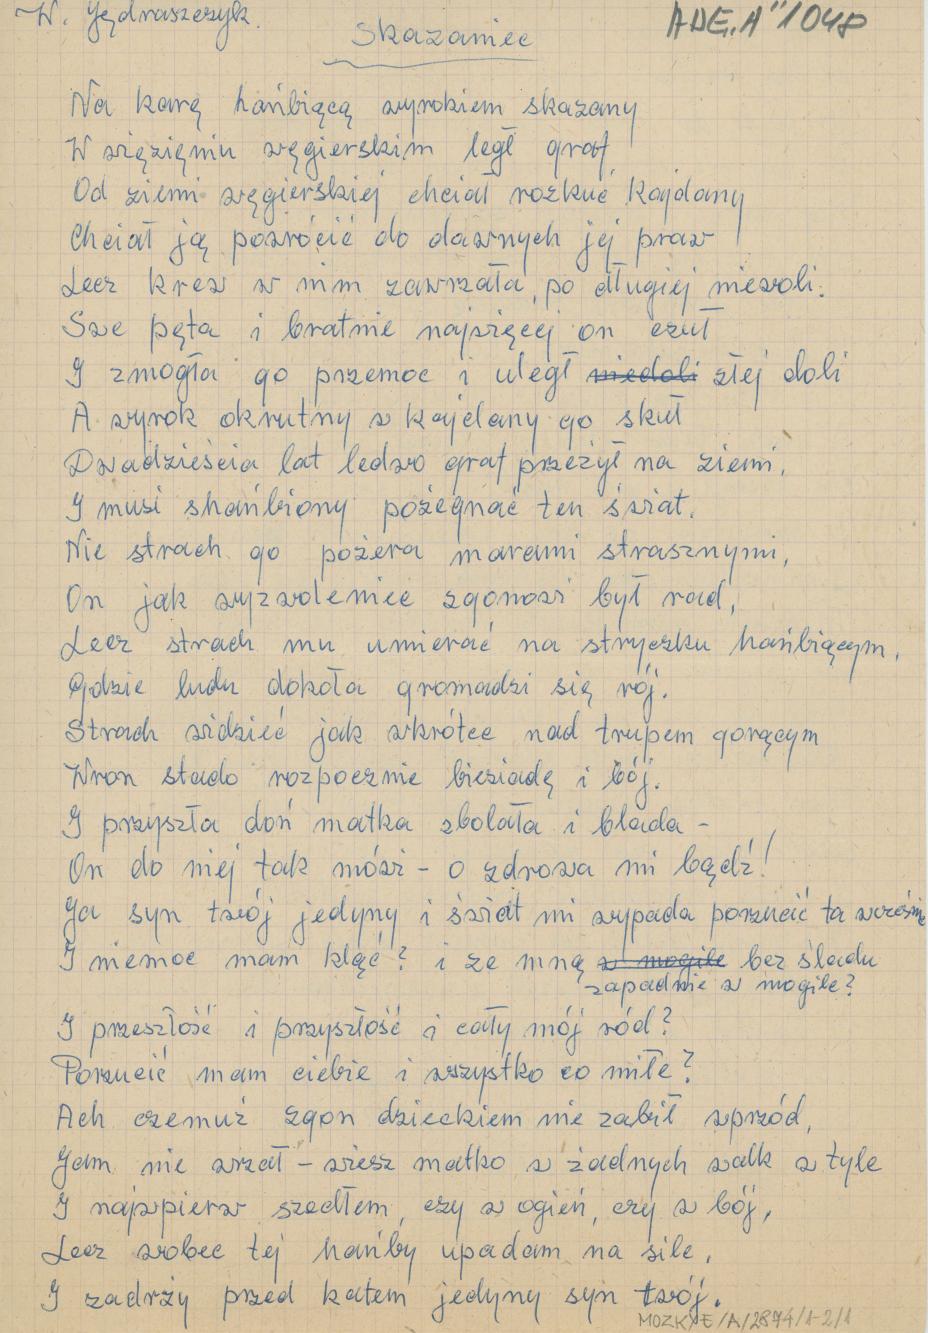 W. Jędraszczyk.
ADE.A" 1048
Skazaniec
Na karę hańbiącą wyrokiem skazany
W więzięniu węgierskim legł graf
Od ziemi węgierskiej chciał rozkuć kajdany
Chciał ją powrócić do dawnych jej praw
Lecz krew w nim zawrzała, po długiej niewoli.
Swe pęta i bratnie najwięcej on czuł
I zmogła go przemoc i uległ niedoli złej doli
A wyrok okrutny w kajdany go skuł
Dwadzieścia lat ledwo graf przeżył na ziemi,
I musi shańbiony pożegnać ten świat.
Nie strach go pożera marami strasznymi,
On jak wyzwoleniec zgonowi był rad,
Lecz strach mu umierać na stryczku hańbiącym,
Gdzie ludu dokoła gromadzi się rój.
Strach widzieć jak wkrótce nad trupem gorącym
Wron stado rozpocznie biesiadę i bój.
I przyszła doń matka zbolała i blada -
On do niej tak mówi - o zdrowa mi bądź!
Ja syn twój jedyny i świat mi wypada porzucić ta
I niemoc mam kląć? i ze mną w mogile bez śladu
zapadnie w mogile?
I przeszłość i przyszłość i cały mój ród?
Porzucić mam ciebie i wszystko co miłe?
Ach czemuż zgon dzieckiem nie zabił wprzód,
Jam nie wrzał - wiesz matko w żadnych walk w tyle
I najwpierw szedłem, czy w ogień, czy w bój,
Lecz wobec tej hańby upadam na sile,
I zadrży przed katem jedyny syn twój.
MOZK/E/A/2874/1-2/1